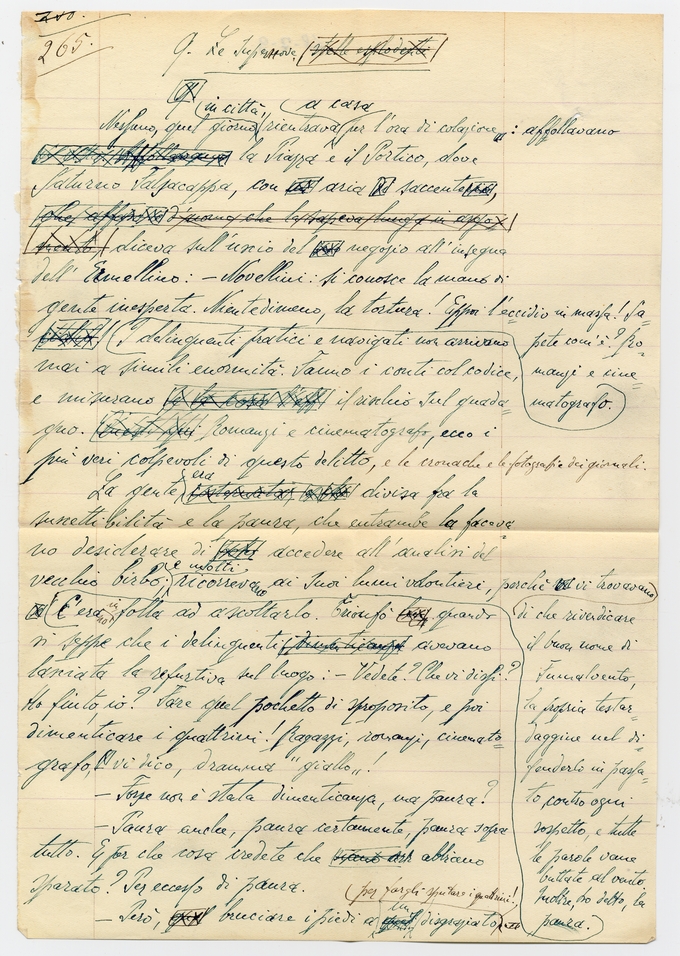 265.
9. Le Supernove
in città, a casa
Nessuno, quel giorno rientrava per l'ora di colazione: affollavano
la Piazza e il Portico, dove
Saturno Falsacappa, con aria saccente,
diceva sull'uscio del negozio all'insegna
dell'Ermellino: — Novellini: si conosce la mano di
gente inesperta. Nientedimeno, la tortura! Eppoi l'eccidio in massa! Sa-
pete com'è? Ro-
manzi e cine-
matografo.
I delinquenti pratici e navigati non arrivano
mai a simili enormità. Fanno i conti col codice,
e misurano il rischio sul guada-
gno. Romanzi e cinematografo, ecco i
più veri colpevoli di questo delitto, e le cronache e le fotografie dei giornali.
La gente, era divisa fra la
suscettibilità e la paura, che entrambe la faceva-
no desiderare di accedere all'analisi del
vecchio birbo; e molti ricorrevano ai suoi lumi volontieri, perché vi trovavano
di che riverdicare
il buon nome di
Fumalvento,
la propria testar-
daggine nel di-
fenderlo in passa-
to, contro ogni
sospetto, e tutte
le parole vane
buttate al vento.
Inoltre, ho detto, la
paura.
C'era folla ad ascoltarlo. Trionfò quando
si seppe che i delinquenti avevano
lasciata la refurtiva sul luogo: — Vedete? Che vi dissi?
Ho finito io? Fare quel pochetto di sproposito, e poi
dimenticare i quattrini! Ragazzi, romanzi, cinemato-
grafo, vi dico, dramma "giallo"!
— Forse non è stata dimenticanza, ma paura?
— Paura anche, paura certamente, paura sopra
tutto. E per che cosa credete che abbiano
sparato? Per eccesso di paura.
per fargli sputare i quattrini!
— Però, bruciare i piedi a un disgraziato